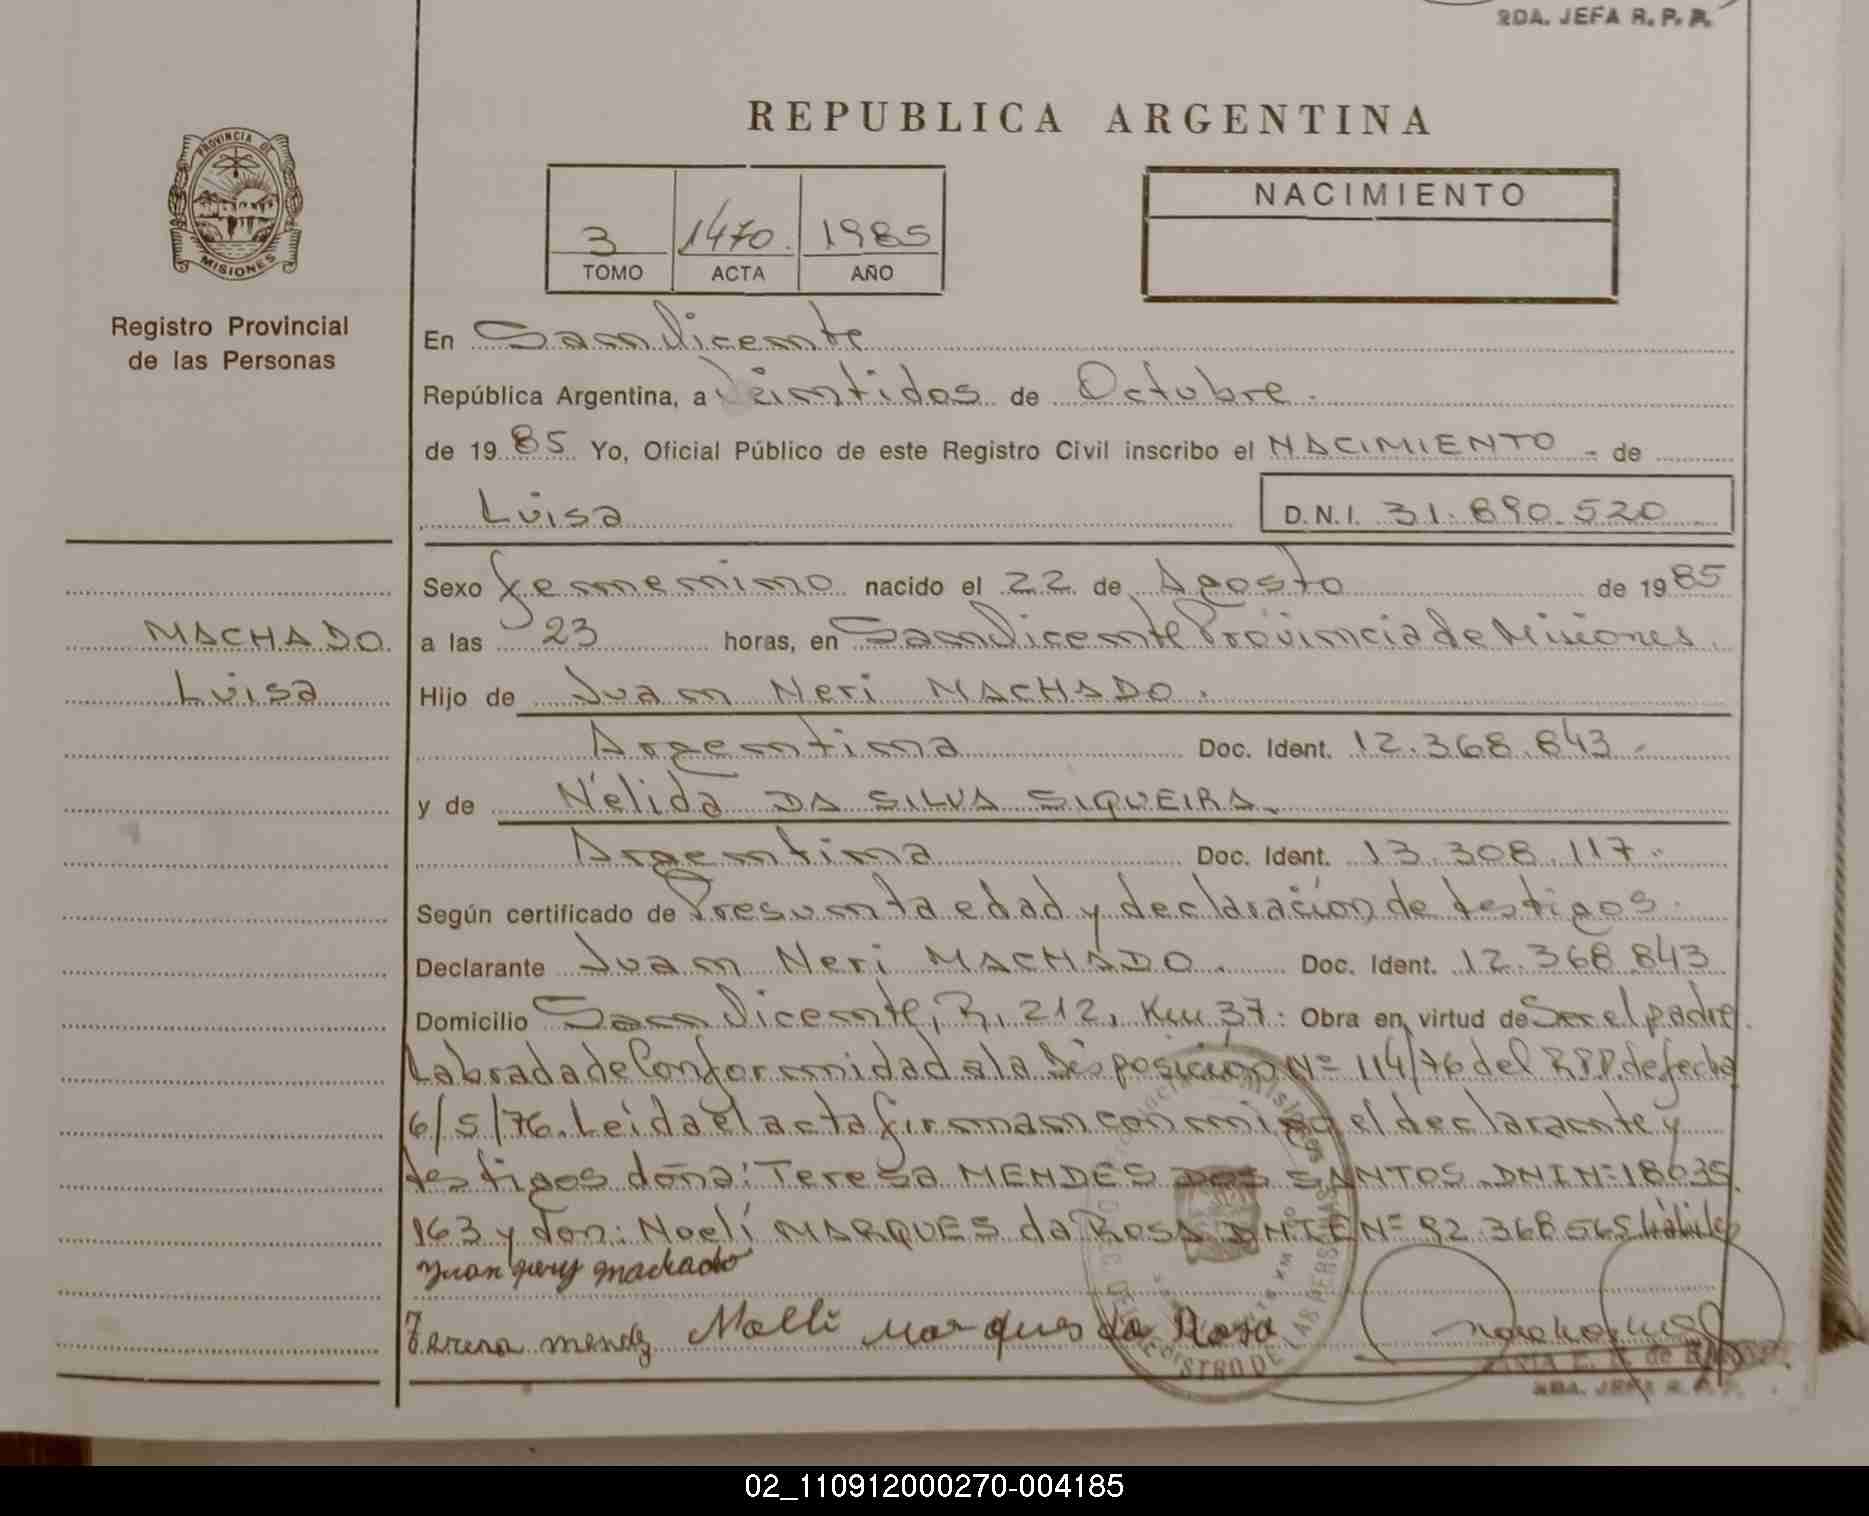 2DA. JEFA R. P. P.
REPUBLICA ARGENTINA
PROVINCIA DE
MISIONES
Registro Provincial
de las Personas
3 1470. 1985
TOMO ACTA AÑO
NACIMIENTO
En San Vicente
República Argentina, a Veintidos de Octubre.
de 19 85 Yo, Oficial Público de este Registro Civil inscribo el NACIMIENTO - de
Luisa D.N.I. 31.890.520
Sexo femenino nacido el 22 de Agosto de 19 85
MACHADO
Luisa
a las 23 horas, en San Vicente Provincia de Misiones.
Hijo de Juan Neri MACHADO.
Argentina Doc. Ident. 12.368.843-
y de Nélida DA SILVA SIQUEIRA.
Argentina Doc. Ident. 13.308.117.-
Según certificado de Presunta edad y declaración de testigos.
Declarante Juan Neri MACHADO. Doc. Ident. 12.368.843
Domicilio San Vicente, R. 212, Km 37. Obra en virtud de Ser el padre.
Labrada de Conformidad a la Disposición Nº 114/76 del R.P.P. de fecha
6/5/76. Leída el acta firman conmigo el declarante y
testigos doña: Teresa MENDES DOS SANTOS DNI Nº 18035.
163 y don: Noelí MARQUES da ROSA DNI E Nº 92.368.565 hábiles
Juan Nery Machado
Teresa mendez Nolli Marques da Rosa
REGISTRO DE LAS PERSONAS
2DA. JEFA R. P. P.
02_110912000270-004185